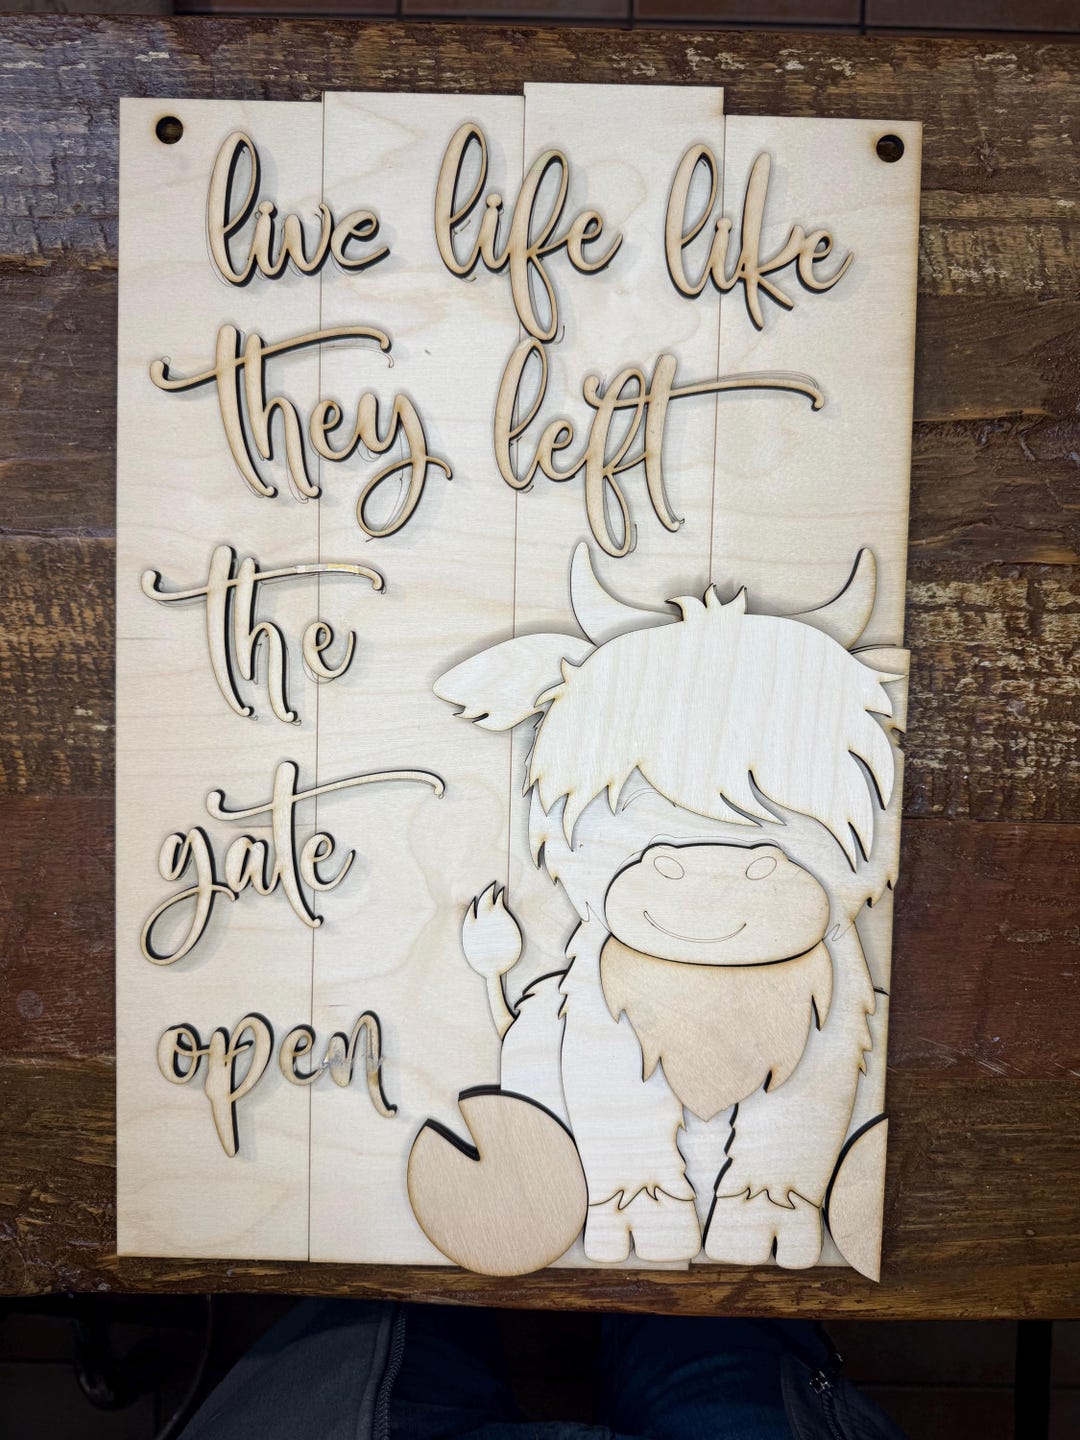 live life like
they left
the
gate
open